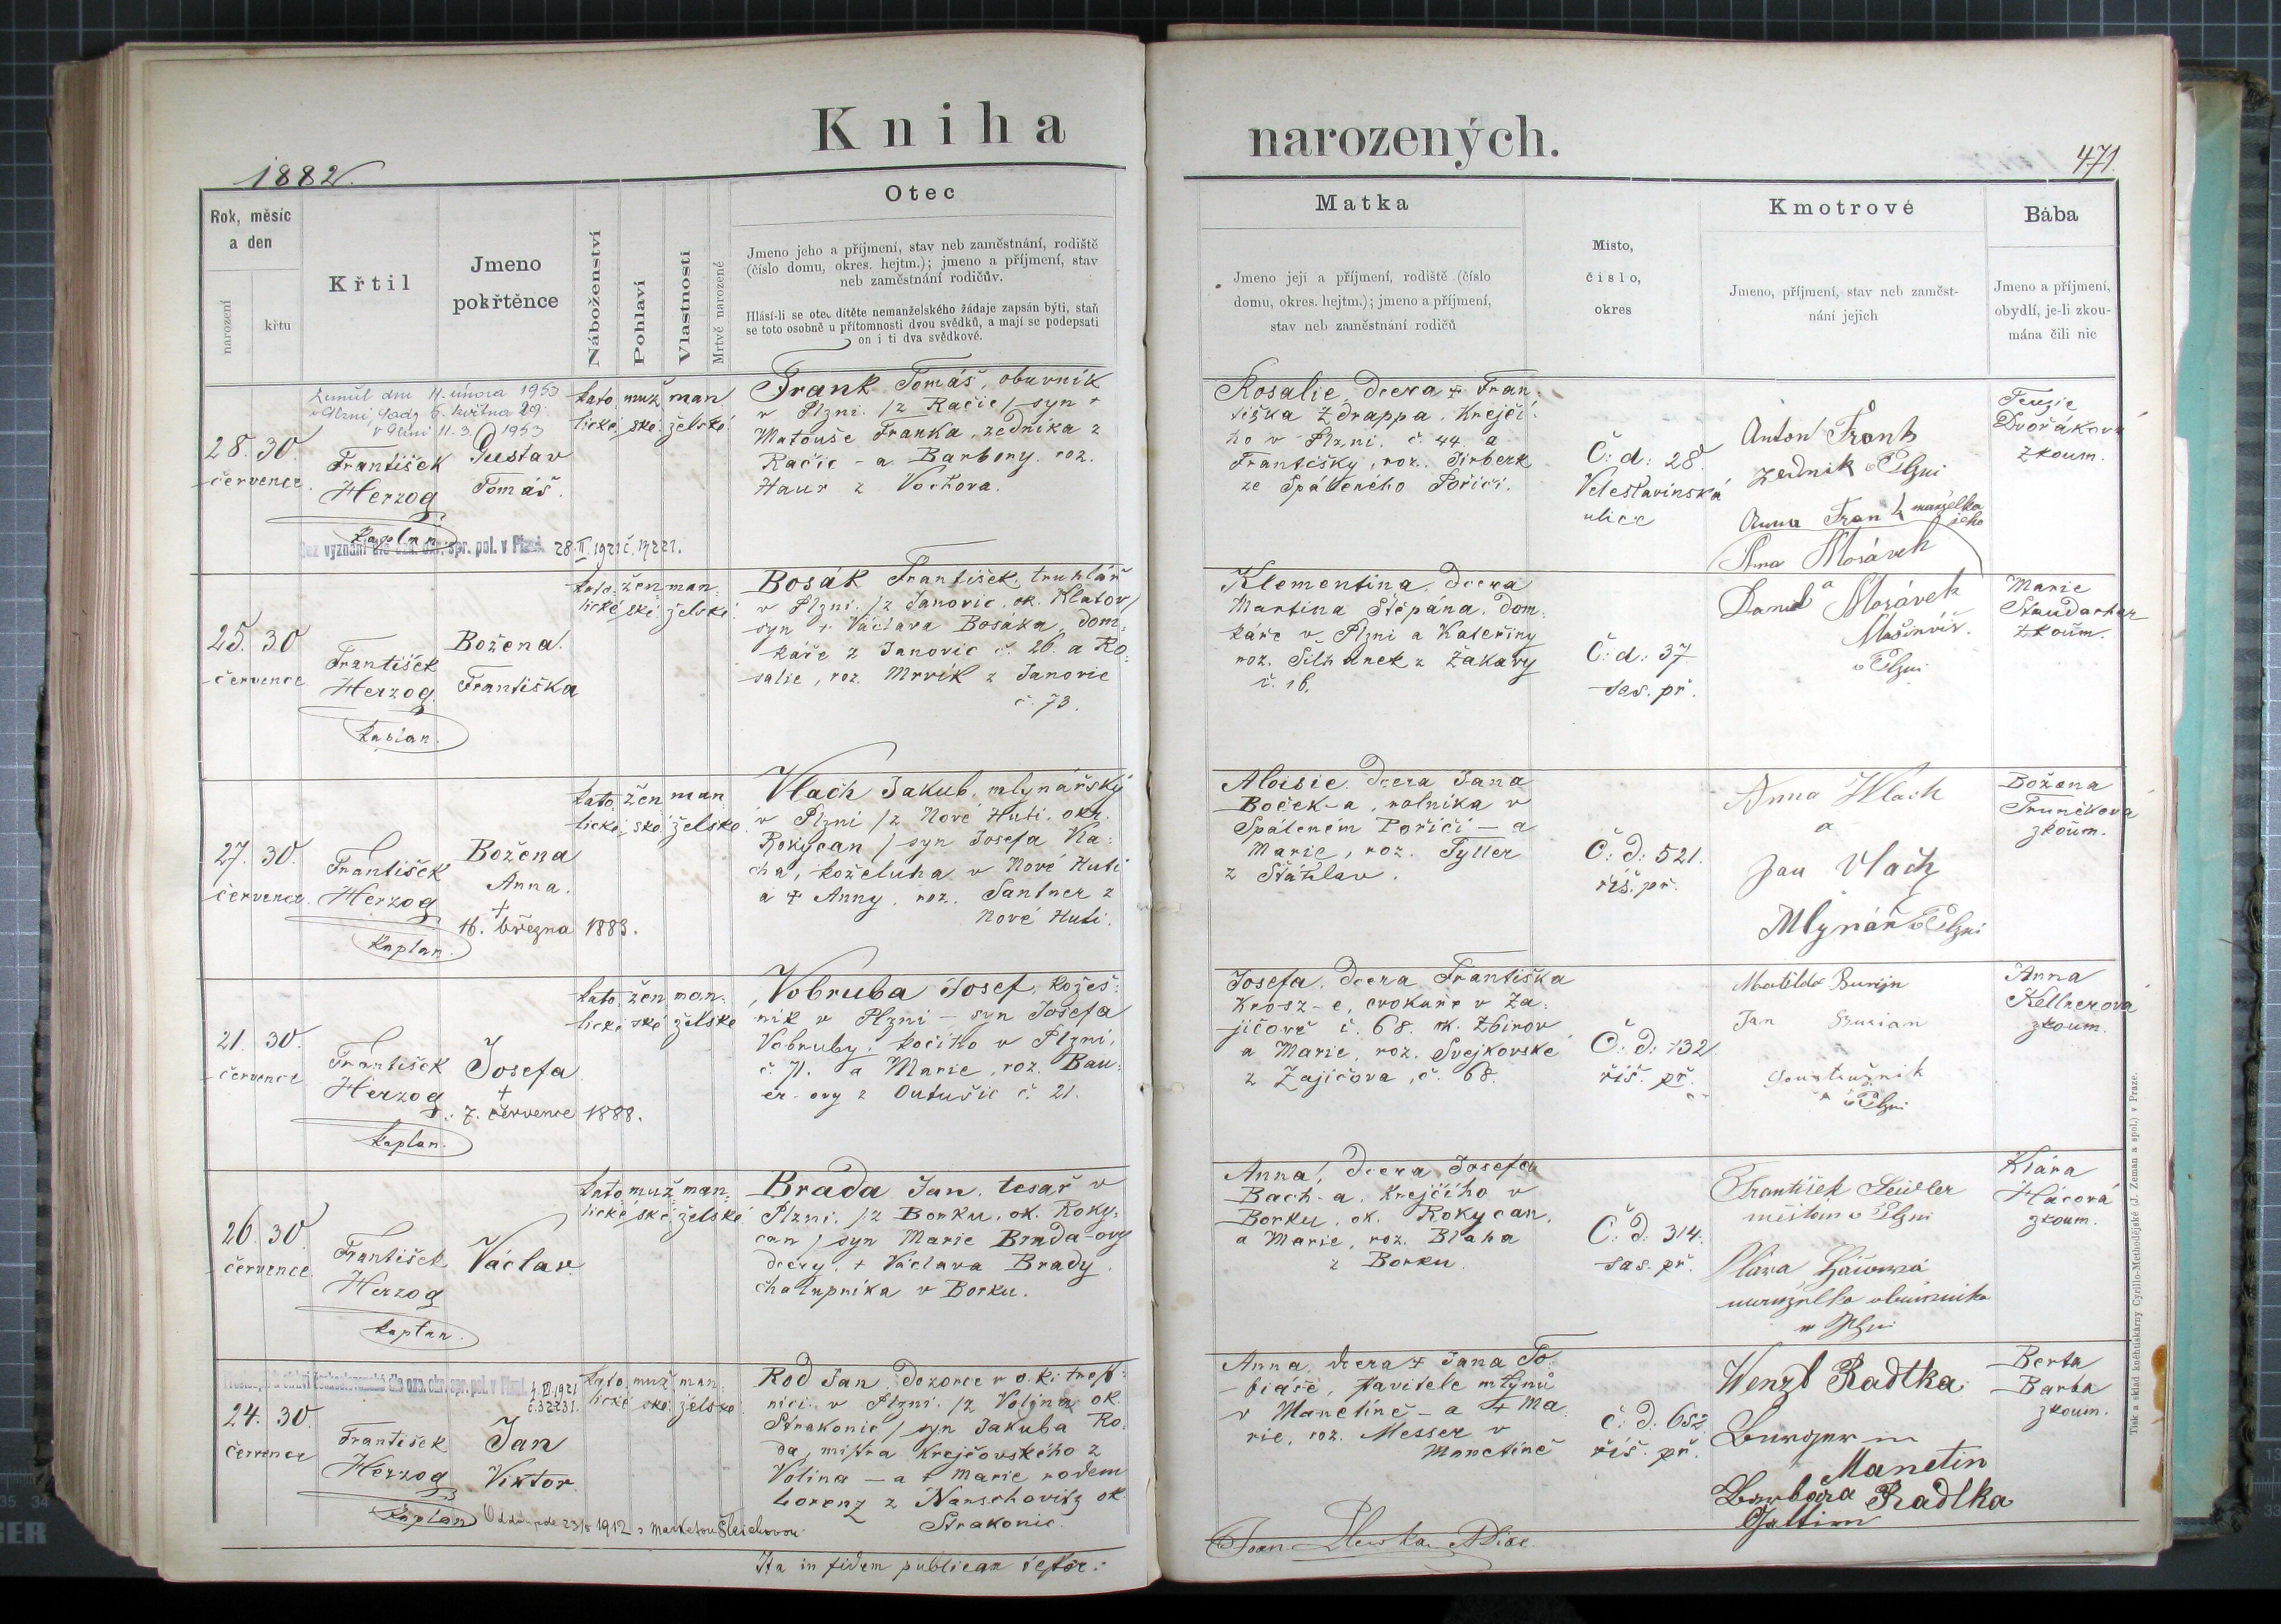 Kniha narozených.
1882.
471.
Rok, měsíc
a den
narození
křtu
Křtil
Jmeno
pokřtěnce
Náboženství
Pohlaví
Vlastnosti
Mrtvě narozené
Otec
Jmeno jeho a příjmení, stav neb zaměstnání, rodiště
(číslo domu, okres. hejtm.); jmeno a příjmení, stav
neb zaměstnání rodičův.
Hlásí-li se otec dítěte nemanželského žádaje zapsán býti, staň
se toto osobně u přítomnosti dvou svědků, a mají se podepsati
on i ti dva svědkové.
Matka
Jmeno její a příjmení, rodiště (číslo
domu, okres. hejtm.); jmeno a příjmení,
stav neb zaměstnání rodičů
Místo,
číslo,
okres
Kmotrové
Jmeno, příjmení, stav neb zaměst-
nání jejich
Bába
Jmeno a příjmení,
obydlí, je-li zkou-
mána čili nic
Zemřel dne 11. února 1953
28. 30.
července.
František
Herzog
kaplan
Gustav
Tomáš.
kato muž man
lické ské želské
Frank Tomáš, obuvník
v Plzni. /z Račic/ syn +
Matouše Franka, zedníka z
Račic - a Barbory. roz.
Haur z Vochova.
Rosalie, dcera + Fran-
tiška Zdrappa, Krejčí-
ho v Plzni. č. 44. a
Františky, roz. Tirberk
ze Spáleného Poříčí.
Č: d: 28.
Veleslavínská
ulice
Anton Frank
zedník v Plzni
Anna Frank manželka
jeho
Dvořáková
zkoum.
28. II. 1921 č.
25. 30
července
František
Herzog
kaplan.
Božena.
Františka
kato: žen man-
lické ské želské
Bosák František, truhlář
v Plzni. /z Janovic, ok. Klatov/
syn + Václava Bosáka, dom-
káře z Janovic č. 26. a Ro-
salie, roz. Mrvík z Janovic
č. 73.
Klementina, dcera
Martina Štěpána, dom-
káře v Plzni a Kateřiny
roz. Silhánek z Žákavy
č. 16.
Č: d: 37
sas. př.
Anna Morávek
a
Daniel Morávek
v Plzni
Marie
zkoum.
27. 30.
července.
František
Herzog
kaplan.
Božena
Anna.
+
16. března 1883.
kato. žen man
lické ské želské
Vlach Jakub, mlynářský
v Plzni /z Nové Huti. okr.
Rokycan / syn Josefa Vla-
cha, koželuha v Nové Huti
a + Anny, roz. Santner z
Nové Huti.
Aloisie, dcera Jana
Boček-a, rolníka v
Spáleném Poříčí - a
Marie, roz. Tyller
z Štáhlav.
Č: d: 521.
říš. př.
Anna Wlach
a
Jan Vlach
Mlynář v Plzni
Božena
Trunečková
zkoum.
21. 30.
července
František
Herzog
kaplan.
Josefa
+
7. července 1888.
kato. žen man-
lické ské želské
Vobruba Josef, kožeš-
ník v Plzni - syn Josefa
Vobruby, kočího v Plzni,
č. 71. a Marie, roz. Bau-
er-ovy z Outušic č. 21.
Josefa, dcera Františka
Krosz-e, cvokaře v Za-
jíčově č. 68. ok. Zbirov
a Marie, roz. Svejkovské
z Zajíčova, č. 68.
Č: d: 132
říš. př.
Jan Burian
Soustružník
v Plzni
Anna
Kellnerová
zkoum.
26. 30.
července.
František
Herzog
kaplan.
Václav.
kato muž man-
lické ské želské
Brada Jan, tesař v
Plzni. /z Borku, ok. Roky-
can / syn Marie Brada-ovy
dcery + Václava Brady.
chalupníka v Borku.
Anna, dcera Josefa
Bach-a, krejčího v
Borku, ok. Rokycan.
a Marie, roz. Blaha
z Borku.
Č: d: 314.
sas. př.
František Seidler
měšťan v Plzni
manželka obuvníka
v Plzni
Klára
Hácová
zkoum.
24. 30.
července
František
Herzog
kaplan
Jan
Viktor.
kato muž man-
lické ské želské
Rod Jan, dozorce v c. k. trest-
nici v Plzni. /z Volyně ok.
Strakonic / syn Jakuba Ro-
da, mistra krejčovského z
Volina - a + Marie rodem
Lorenz z Nanschovitz ok.
Strakonic.
Anna, dcera + Jana To-
biáše, stavitele mlýnů
v Manětíně - a + Ma-
rie, roz. Messer v
Manětíně
č: d. 652
říš. př.
Wenzl Radtka
Burger in
Manetin
Barbara Radtka
Gattin
Berta
Barta
zkoum.
Oddán dne 23/5 1912 s Markétou Šleichovou
Ita in fidem publicam testor:
Tisk a sklad knihtiskárny Cyrillo-Methodějské (J. Zeman a spol.) v Praze.